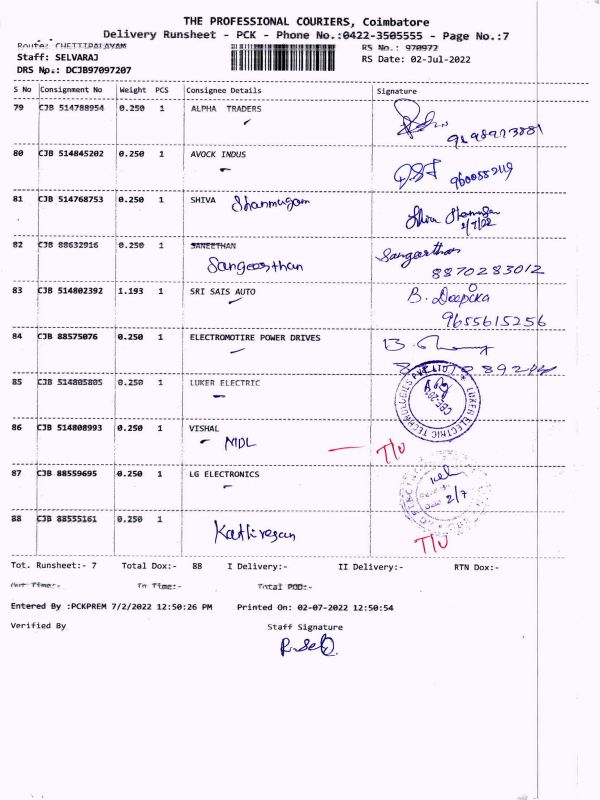 THE PROFESSIONAL COURIERS, Coimbatore
Delivery Runsheet - PCK - Phone No.:0422-3505555 - Page No.:7
Route: CHETTIPALAYAM RS No.: 970972
Staff: SELVARAJ RS Date: 02-Jul-2022
DRS No.: DCJB97097207
S No Consignment No Weight PCS Consignee Details Signature
79 CJB 514788954 0.250 1 ALPHA TRADERS
80 CJB 514845202 0.250 1 AVOCK INDUS
9600552119
81 CJB 514768753 0.250 1 SHIVA Shanmugam
2/7/22
82 CJB 88632916 0.250 1 SANEETHAN Sangeerthan
Sangeerthan 8870283012
83 CJB 514802392 1.193 1 SRI SAIS AUTO B. Deepika
9655615256
84 CJB 88575076 0.250 1 ELECTROMOTIRE POWER DRIVES
85 CJB 514805805 0.250 1 LUKER ELECTRIC
LUKER ELECTRIC TECHNOLOGIES PVT LTD
86 CJB 514808993 0.250 1 VISHAL
MDL T/U
87 CJB 88559695 0.250 1 LG ELECTRONICS
2/7
88 CJB 88555161 0.250 1
Kathiresan T/U
Tot. Runsheet:- 7 Total Dox:- 88 I Delivery:- II Delivery:- RTN Dox:-
Out Time:- In Time:- Total POD:-
Entered By :PCKPREM 7/2/2022 12:50:26 PM Printed On: 02-07-2022 12:50:54
Verified By Staff Signature